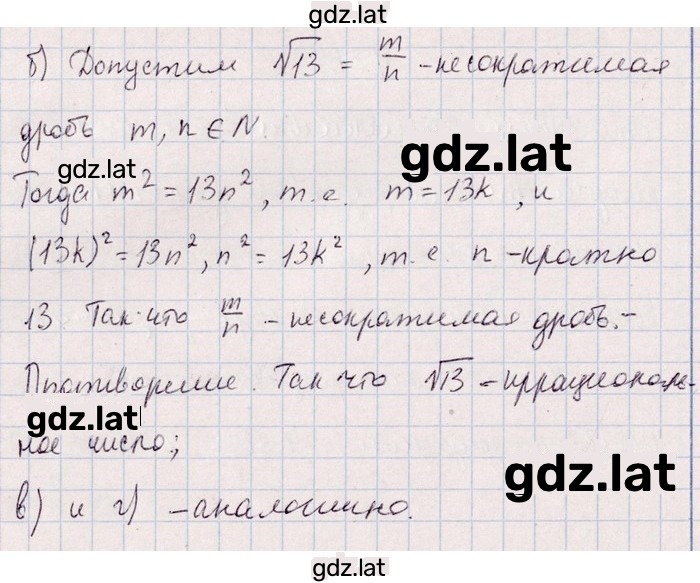 gdz.lat
б) Допустим √13 = m/n - несократимая
дробь m, n ∈ N.
gdz.lat
gdz.lat
Тогда m² = 13n², т.е. m = 13k, и
(13k)² = 13n², n² = 13k², т.е. n - кратно
13 Так что m/n - несократимая дробь. -
Противоречие. Так что √13 - иррациональ-
gdz.lat
ное число;
gdz.lat
в) и г) - аналогично.
gdz.lat